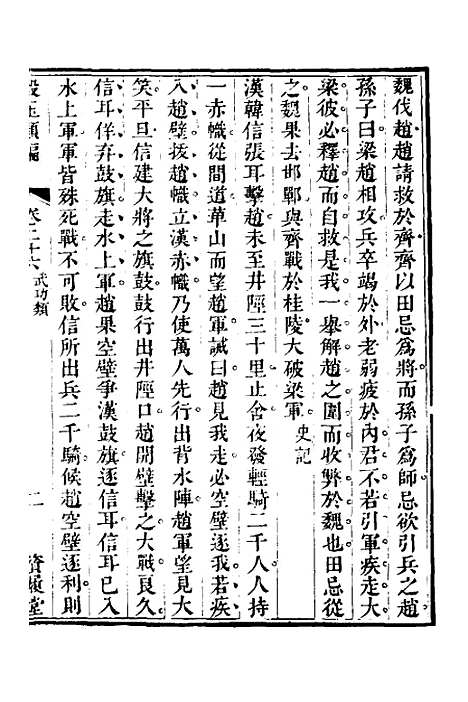 魏伐趙趙請救於齊齊以田忌為將而孫子為師忌欲引兵之趙
孫子曰梁趙相攻兵卒竭於外老弱疲於內君不若引軍疾走大
梁彼必釋趙而自救是我一舉解趙之圍而收弊於魏也田忌從
之魏果去邯鄲與齊戰於桂陵大破梁軍史記
漢韓信張耳擊趙未至井陘三十里止舍夜發輕騎二千人人持
一赤幟從間道萆山而望趙軍誡曰趙見我走必空壁逐我若疾
入趙壁拔趙幟立漢赤幟乃使萬人先行出背水陣趙軍望見大
笑平旦信建大將之旗鼓鼓行出井陘口趙開壁擊之大戰良久
信耳佯弃鼓旗走水上軍趙果空壁爭漢鼓旗逐信耳信耳已入
水上軍軍皆殊死戰不可敗信所出兵二千騎候趙空壁逐利則
類編 卷二十六 武功類 二 資履堂